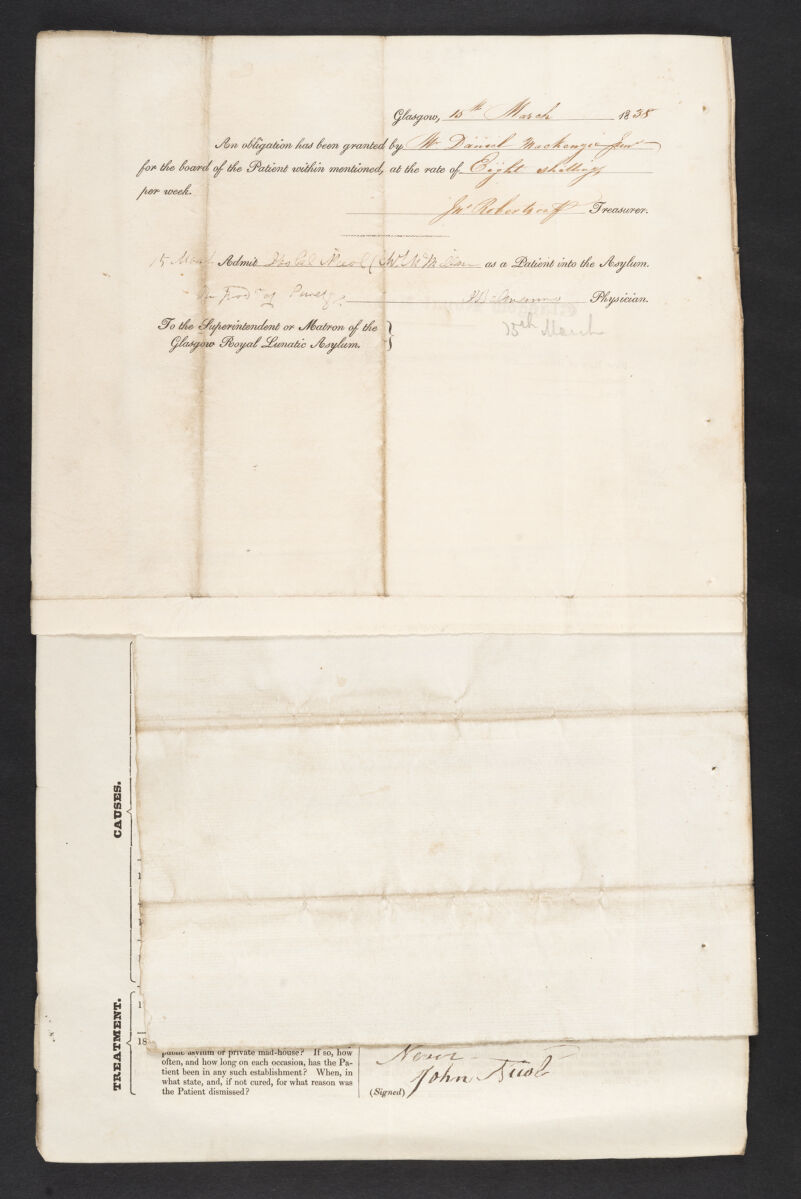 Glasgow, 15th March 1838
An obligation has been granted by Mr Daniel Mackenzie Junr
for the board of the Patient within mentioned, at the rate of Eight shillings
per week.
Jno Robertson Treasurer.
15 March Admit Isobel Nicol ( Mrs McMillan as a Patient into the Asylum.
Physician.
15th March
To the Superintendent or Matron of the
Glasgow Royal Lunatic Asylum.
CAUSES.
TREATMENT.
1
18
public asylum or private mad-house? If so, how
often, and how long on each occasion, has the Pa-
tient been in any such establishment? When, in
what state, and, if not cured, for what reason was
the Patient dismissed?
Never
(Signed) John Nicol